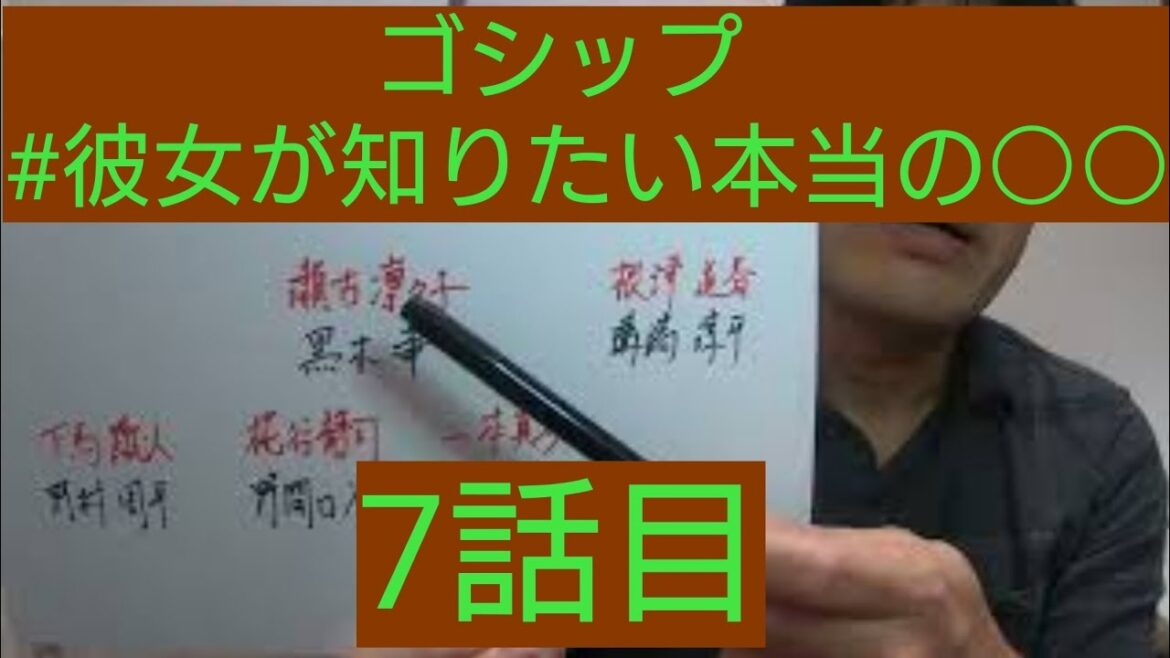 ゴシップ
#彼女が知りたい本当の○○
瀬古凛々子
根津道春
黒木華
溝端淳平
下馬蹴人
桃谷静司
一本真
野村周平
野間口
7話目